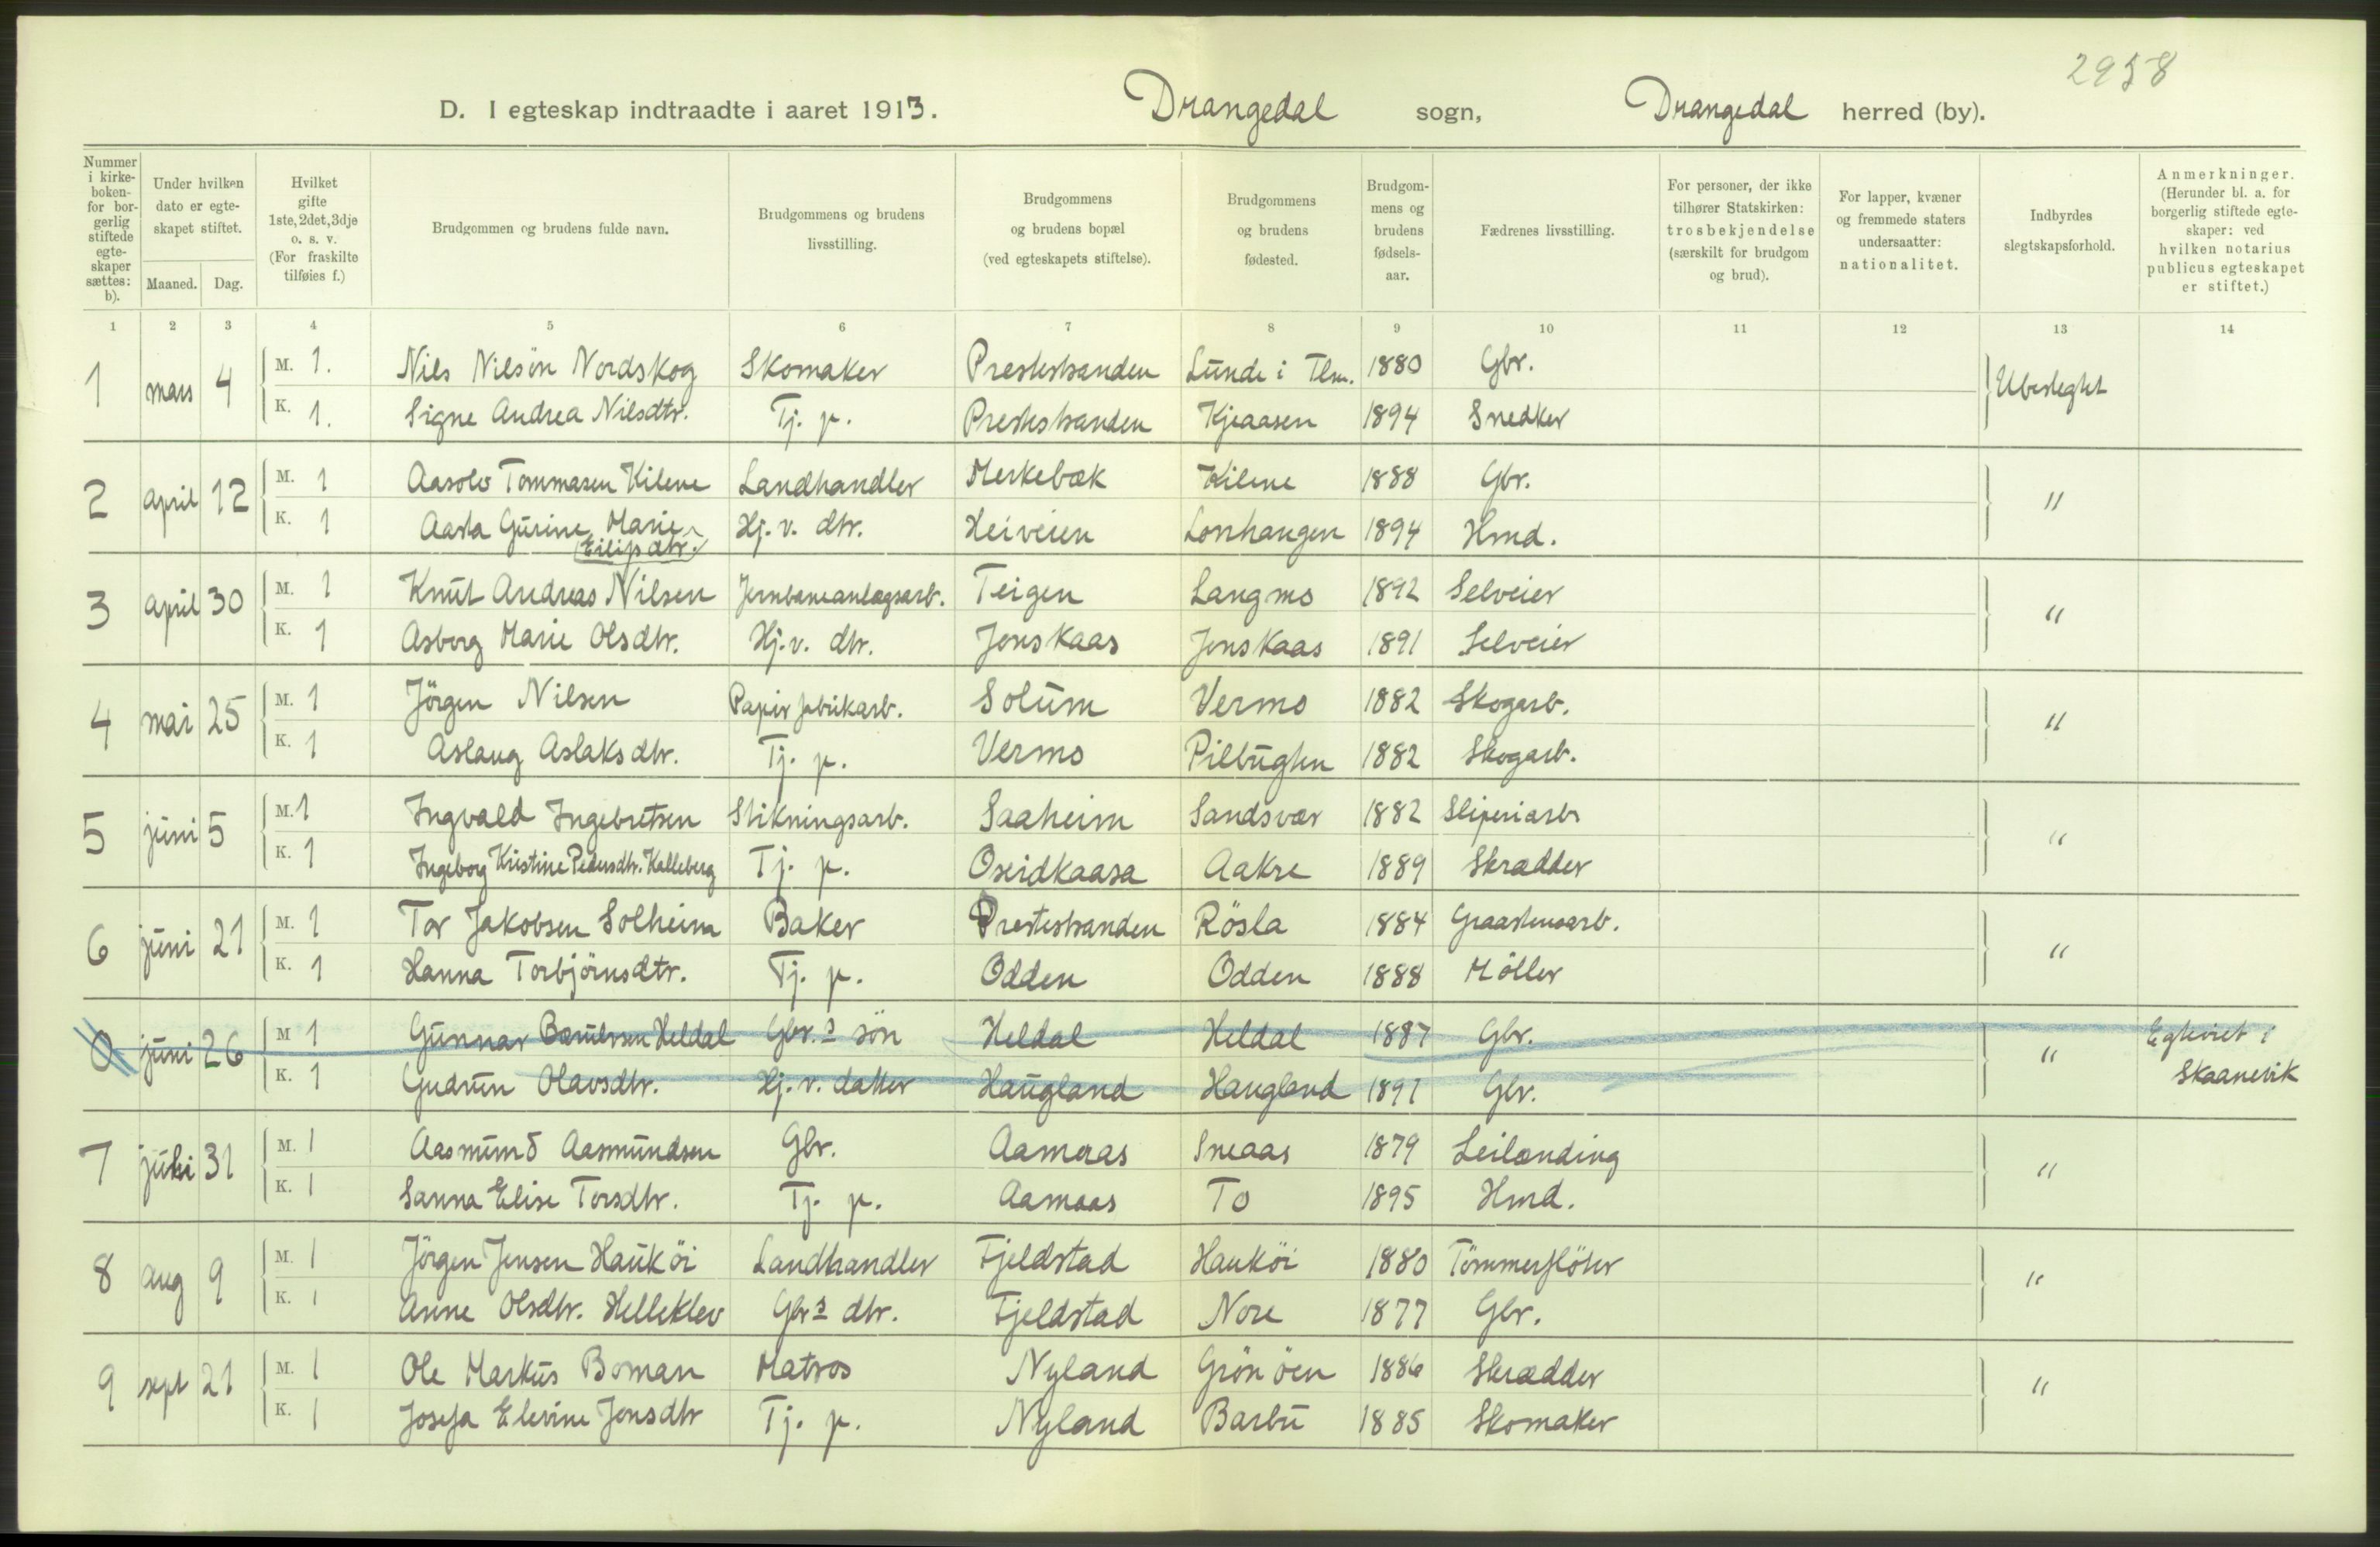 2958
D. I egteskap indtraadte i aaret 1913. Drangedal sogn, Drangedal herred (by).
Nummer i kirke-boken- for bor-gerlig stiftede egte-skaper sættes: b).
Under hvilken dato er egte-skapet stiftet.
Maaned. Dag.
Hvilket gifte 1ste, 2det, 3dje o. s. v. (For fraskilte tilføies f.)
Brudgommen og brudens fulde navn.
Brudgommens og brudens livsstilling.
Brudgommens og brudens bopæl (ved egteskapets stiftelse).
Brudgommens og brudens fødested.
Brudgom-mens og brudens fødsels-aar.
Fædrenes livsstilling.
For personer, der ikke tilhører Statskirken: trosbekjendelse (særskilt for brudgom og brud).
For lapper, kvæner og fremmede staters undersaatter: nationalitet.
Indbyrdes slegtskapsforhold.
Anmerkninger. (Herunder bl. a. for borgerlig stiftede egte-skaper: ved hvilken notarius publicus egteskapet er stiftet.)
1 2 3 4 5 6 7 8 9 10 11 12 13 14
1 mars 4 M. 1. Nils Nilsön Nordskog Skomaker Prestestranden Lunde i Tlm. 1880 Gbr. Ubeslegtet
K. 1. Signe Andrea Nilsdtr. Tj. p. Prestestranden Kjeaasen 1894 Snedker
2 april 12 M. 1 Aasolv Tommasen Kilene Landhandler Merkebæk Kilene 1888 Gbr. "
K. 1 Aasta Gurine Marie Eilipsdtr. Hj. v. dtr. Heiveien Lonhaugen 1894 Hmd.
3 april 30 M. 1 Knut Andreas Nilsen Jernbaneanlægsarb. Teigen Langmo 1892 Selveier "
K. 1 Asborg Marie Olsdtr. Hj. v. dtr. Jonskaas Jonskaas 1891 Selveier
4 mai 25 M. 1 Jörgen Nilsen Papirfabrikarb. Solum Vermo 1882 Skogarb. "
K. 1 Aslaug Aslaksdtr. Tj. p. Vermo Pilbugten 1882 Skogarb.
5 juni 5 M. 1 Ingvald Ingebretsen Stikningsarb. Saaheim Sandsvær 1882 Sliperiarb. "
K. 1 Ingeborg Kristine Pedersdtr. Kalleberg Tj. p. Oseidkaasa Aakre 1889 Skrædder
6 juni 21 M. 1 Tor Jakobsen Solheim Baker Prestestranden Rösla 1884 Graastensarb. "
K. 1 Hanna Torbjörnsdtr. Tj. p. Odden Odden 1888 Möller
0 juni 26 M 1 Gunnar Heldal Gbr.s sön Heldal Heldal 1887 Gbr. " Egteviet i
K. 1 Gudrun Olavsdtr. Hj. v. datter Haugland Haugland 1891 Gbr. Skaanevik
7 juli 31 M. 1 Aasmund Aasmundsen Gbr. Aamaas Sneaas 1879 Leilænding "
K. 1 Sanna Elise Torsdtr. Tj. p. Aamaas To 1895 Hmd.
8 aug 9 M. 1 Jörgen Jensen Hauköi Landhandler Fjeldstad Hauköi 1880 Tömmerflöter "
K. 1 Anne Olsdtr. Helleklev Gbrs dtr. Fjeldstad Nore 1877 Gbr.
9 sept 21 M. 1 Ole Markus Boman Matros Nyland Grönöen 1886 Skrædder "
K. 1 Josefa Elevine Jonsdtr Tj. p. Nyland Barbu 1885 Skomaker